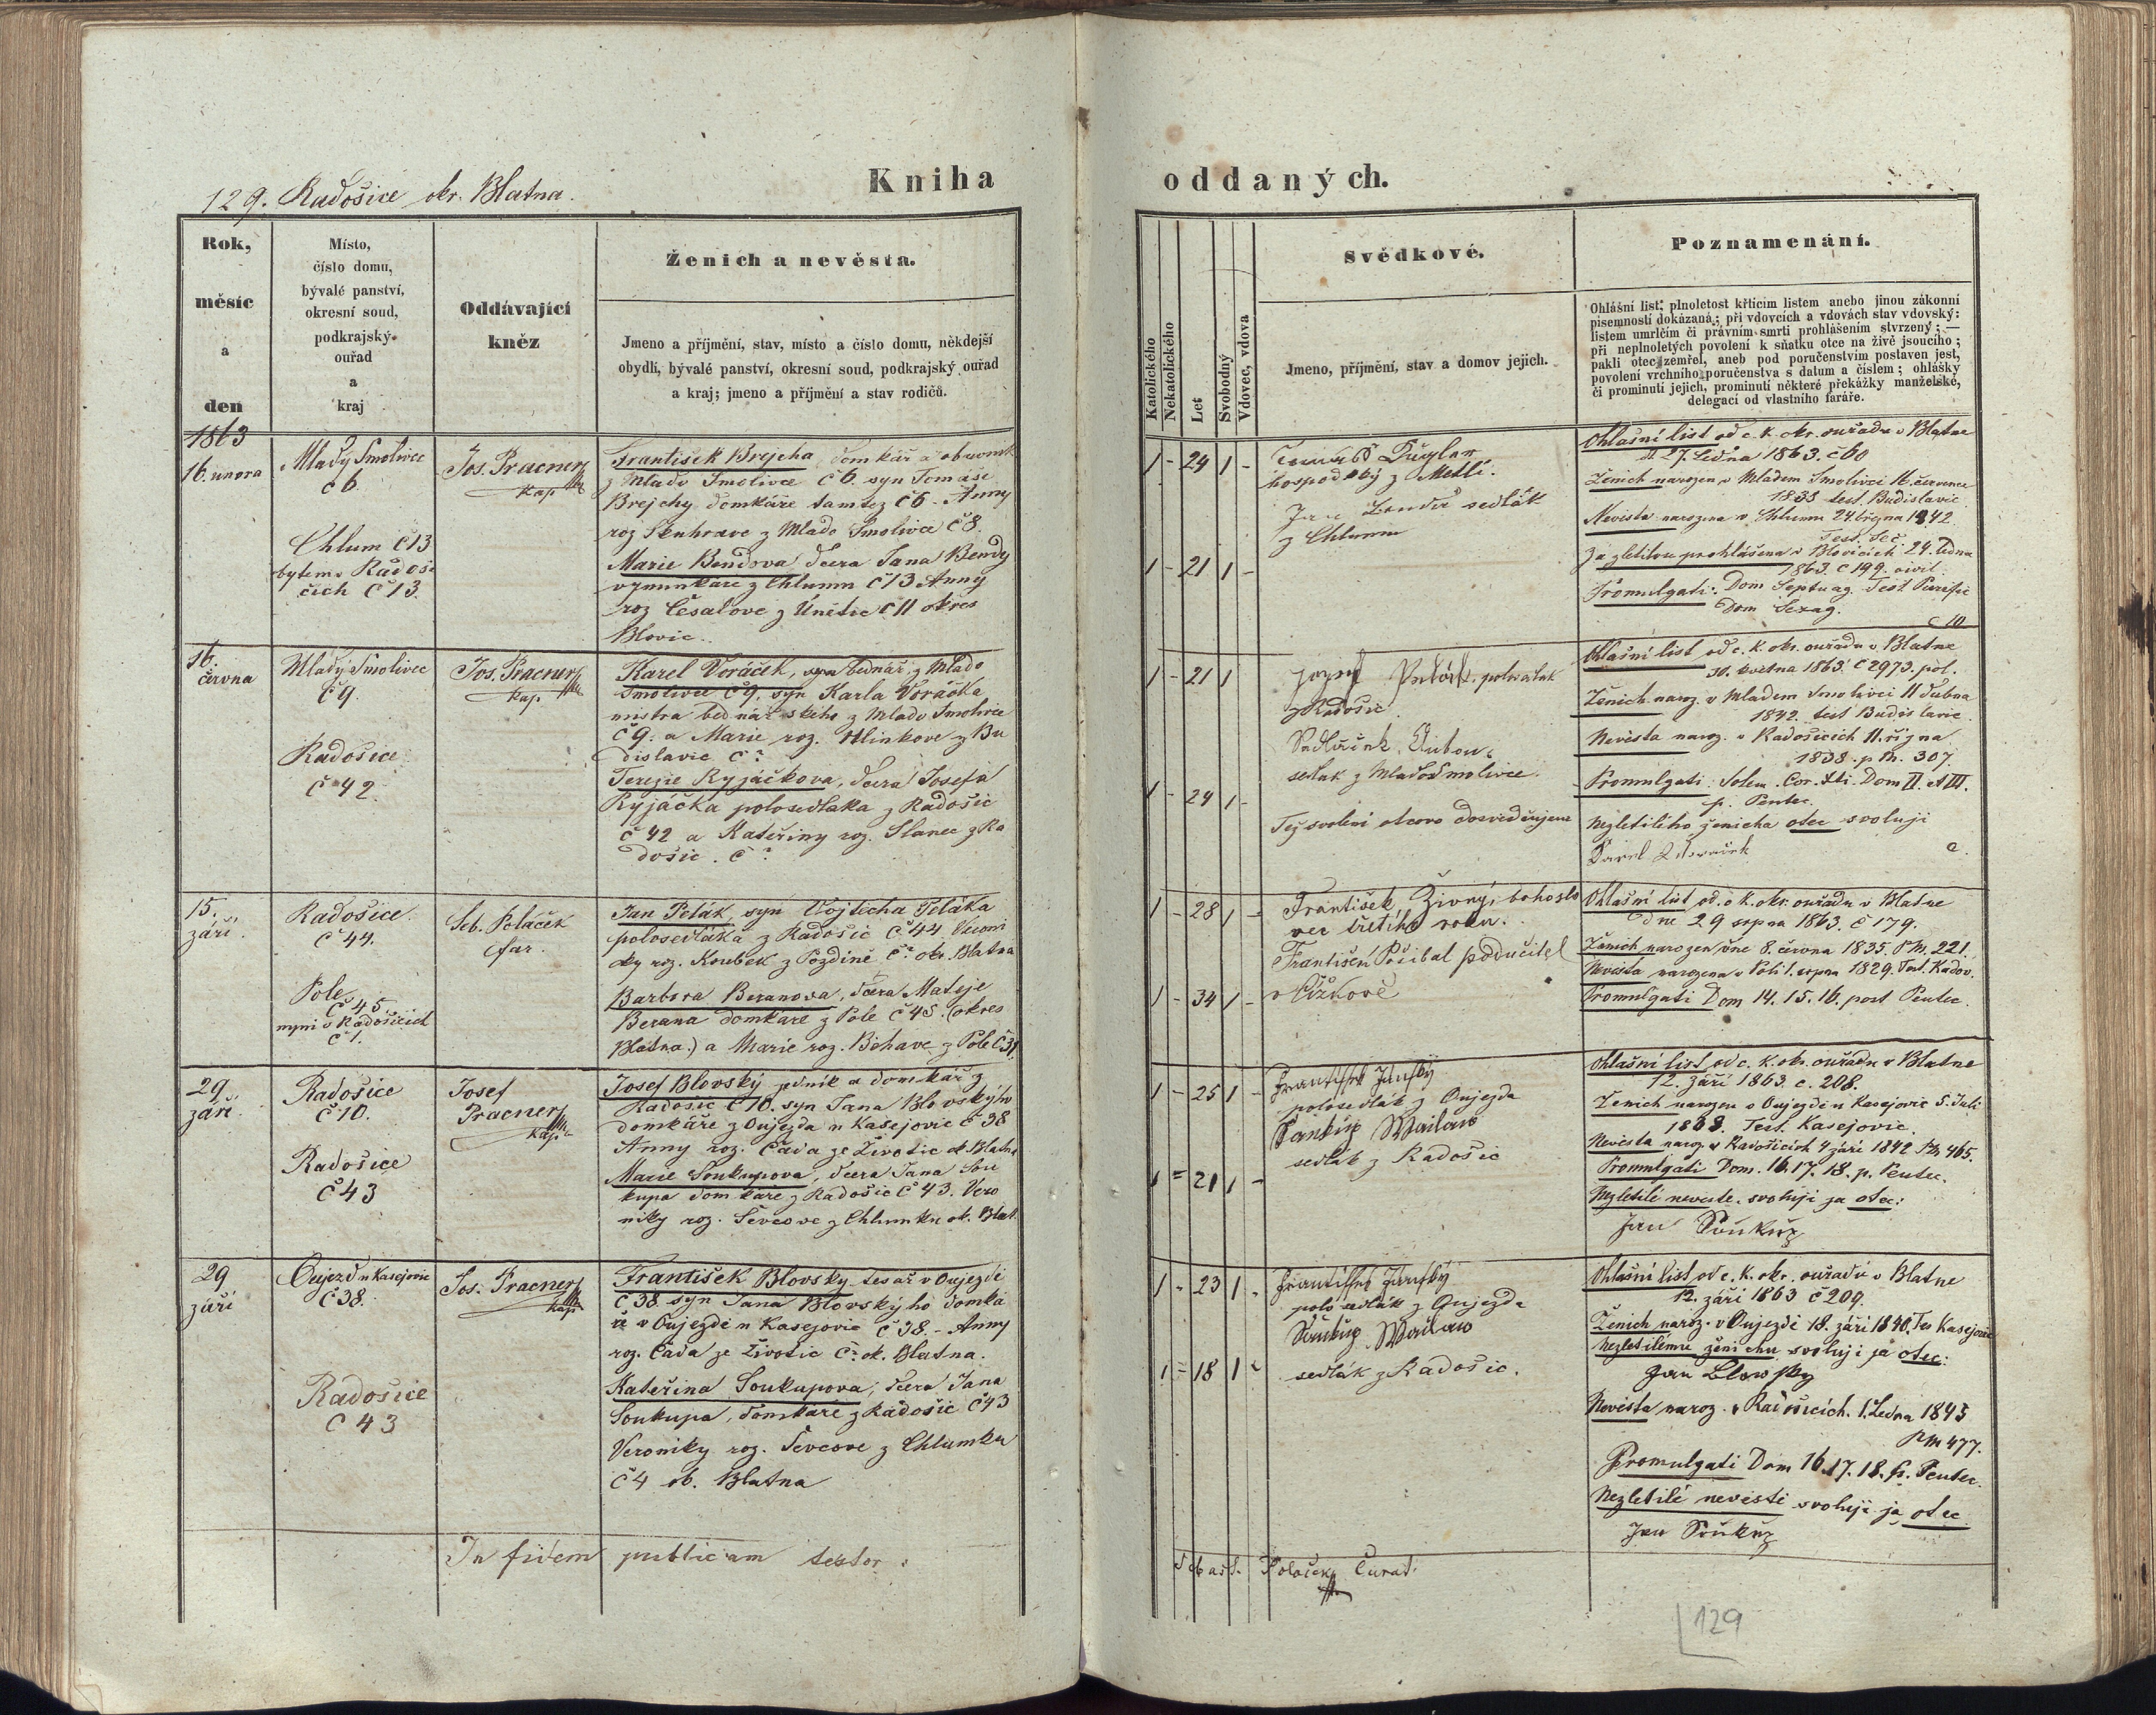 129. Radošice okr. Blatna.
Kniha
oddaných.
Rok,
měsíc
a
den
Místo,
číslo domu,
bývalé panství,
okresní soud,
podkrajský
ouřad
a
kraj
Oddávající
kněz
Ženich a nevěsta.
Jmeno a příjmění, stav, místo a číslo domu, někdejší
obydlí, bývalé panství, okresní soud, podkrajský ouřad
a kraj; jmeno a příjmění a stav rodičů.
Katolického
Nekatolického
Let
Svobodný
Vdovec, vdova
Svědkové.
Jmeno, příjmění, stav a domov jejich.
Poznamenání.
Ohlášní list; plnoletost křticím listem anebo jinou zákonní
písemností dokázaná; při vdovcích a vdovách stav vdovský:
listem umrlčím či právním smrti prohlášením stvrzený; —
při neplnoletých povolení k sňatku otce na živě jsoucího;
pakli otec zemřel, aneb pod poručenstvím postaven jest,
povolení vrchního poručenstva s datum a číslem; ohlášky
či prominutí jejich, prominutí některé překážky manželské,
delegací od vlastního faráře.
1863
16. unora
Mlady Smolivec
č 6.
Chlum č 13
bytem v Radoši
čich č 13.
Jos. Pracner
kap.
František Brejcha, domkář a obuvník
z Mlado Smolivce č 6. syn Tomáše
Brejchy domkáře tamtez č 6 - Anny
roz Skuhrave z Mlado Smolivce č 8.
Marie Bendova dcera Jana Bendy
vyminkáře z Chlumu č 13 Anny
roz Česalove z Únětic č 11 okres
Blovic.
1 - 24 1 -
1 - 21 1 -
hospodský z Metlí.
Jan Benda sedlák
z Chlumu
Ohlašní list od c. k. okr. ouřadu v Blatne
d. 27. Ledna 1863. č 60
Ženich narozen v Mladem Smolivci 16. července
1838 test. Budislavic
Nevěsta narozena v Chlumu 24. března 1842
Test. Seč
Za zletilou prohlášena v Blovicích 24. ledna
1863. č 199. civil.
Promulgati: Dom Septuag. Fest Purific
Dom Sexag.
16.
června
Mladý Smolivec
č 9.
Radošice
č 42.
Jos. Pracner
kap.
Karel Voráček, syn bednář z Mlado
Smolivce č 9, syn Karla Voráčka
mistra bednářského z Mlado Smolivce
č 9. a Marie roz. Hlinkove z Bu
dislavic č ?
Terezie Ryjáčkova, dcera Josefa
Ryjáčka polosedlaka z Radošic
č 42 a Kateřiny roz. Slanec z Ra
došic. č ?
1 - 21 1
1 - 24 1 -
Jozef polosedlak
z Radošic
Sedláček Anton
sedlak z Mlado Smolivce.
Též svolení otcovo dosvedčujeme
Ohlašní list od c. k. okr. ouřadu v Blatne
30. května 1863. č 2973. pol.
Ženich naroz. v Mladem Smolivci 11 dubna
1842. test Budislavic.
Nevěsta naroz. v Radošicích 11. října
1838. p M. 307.
Promulgati: Solem. Cor. Xti. Dom II. et III.
p. Pentec.
Nezletilého ženicha otec svoluji
Karel Woraček
15.
září.
Radošice.
č 44.
Pole
č 45
nyni v Radošicích
č 1.
Seb. Poláček
far.
Jan Pelák, syn Vojtecha Peláka
polosedláka z Radošic č 44 Veroni
ky roz. Koubek z Pozdině č ? okr. Blatna
Barbora Beranova, dcera Matěje
Berana domkáře z Pole č 45. (okres
Blatna.) a Marie roz. Bohave z Pole č 31.
1 - 28 1 -
1 - 34 1 -
František Živný, bohoslo
vec třetího roku.
František Přibal podučitel
v Čížkově
Ohlašní list od. c k. okr. ouřadu v Blatne
dne 29 srpna 1863. č 179.
Ženich narozen dne 8. června 1835. P M. 221.
Nevěsta narozena v Poli 1. srpna 1829. Test. Kadov.
Promulgati Dom 14. 15. 16. post Pentec.
29
září.
Radošice
č 10.
Radošice
č 43
Josef
Pracner
kap.
Josef Blovský podník a domkář z
Radošic č 10. syn Jana Blovskýho
domkáře z Oujezda u Kasejovic č 38
Anny roz. Čada ze Životic ok Blatna
Marie Soukupova, dcera Jana Sou
kupa domkáře z Radošic č 43. Vero
niky roz. Ševcove z Chlumku ok. Blat.
1 - 25 1 -
1 = 21 1 -
František Jánský
polosedlák z Oujezda
Saukup Waclaw
sedlák z Radošic
Ohlašní list od c. k. okr. ouřadu v Blatne
12. září 1863. č. 208.
Ženich narozen v Oujezdě u Kasejovic 5. Juli
1838. Test. Kasejovic.
Nevěsta naroz. v Radošicích 4 září 1842 PM 465.
Promulgati Dom. 16. 17. 18. p. Pentec.
Nezletilé nevěste. svoluji ja otec:
Jan Saukup
29
září
Oujezd u Kasejovic
č 38.
Radošice
č 43
Jos. Pracner
kap.
František Blovsky tesař v Oujezdě
č 38 syn Jana Blovskýho domká
ře v Oujezdě u Kasejovic č 38. - Anny
roz. Čada ze Životic č ? ok. Blatna.
Kateřina Soukupova, dcera Jana
Soukupa, domkáře z Radošic č 43
Veroniky roz. Ševcove z Chlumku
č 4 ob. Blatna
1 - 23 1 -
1 = 18 1 -
František Jánský
polosedlák z Oujezda
Saukup Waclaw
sedlák z Radošic.
Ohlašní list od c. k. okr. ouřadu v Blatne
12. září 1863 č 209.
Ženich naroz. v Oujezdě 18. září 1840. Tes Kasejovic
Nezletilému ženichu svoluji já otec:
Jan Blowsky
Nevěsta naroz. v Radošicích. 1. Ledna 1845
PM 477.
Promulgati Dom 16. 17. 18. p. Pentec.
Nezletilé nevěstě svoluji ja otec
Jan Saukup
In fidem publicam testor:
Sebast. Polaček Curat.
129